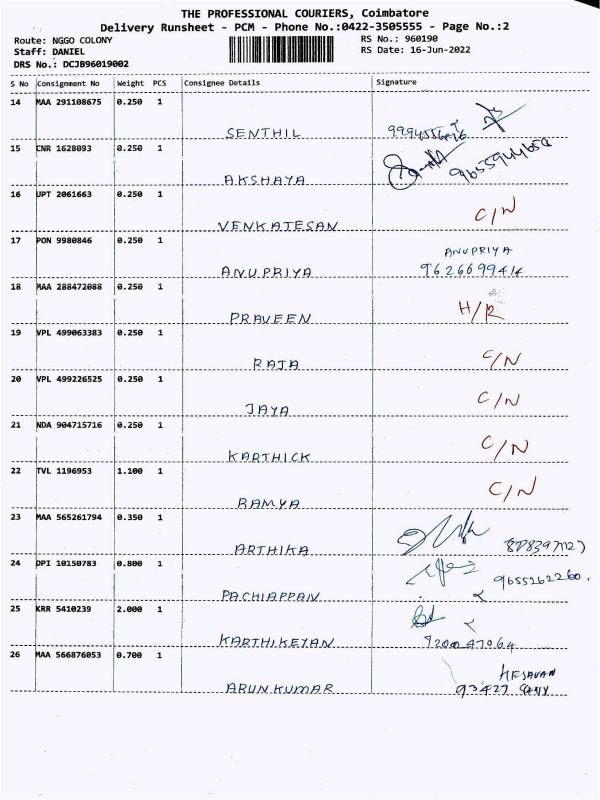 THE PROFESSIONAL COURIERS, Coimbatore
Delivery Runsheet - PCM - Phone No.:0422-3505555 - Page No.:2
Route: NGGO COLONY
RS No.: 960190
Staff: DANIEL
RS Date: 16-Jun-2022
DRS No.: DCJB96019002
S No Consignment No Weight PCS Consignee Details Signature
14 MAA 291108675 0.250 1
SENTHIL
15 CNR 1628093 0.250 1
AKSHAYA
16 UPT 2061663 0.250 1
C/N
VENKATESAN
17 PON 9980846 0.250 1
ANUPRIYA
ANUPRIYA 9626699414
18 MAA 288472088 0.250 1
H/R
PRAVEEN
19 VPL 499063383 0.250 1
RAJA C/N
20 VPL 499226525 0.250 1
C/N
JAYA
21 NDA 904715716 0.250 1
C/N
KARTHICK
22 TVL 1196953 1.100 1
C/N
RAMYA
23 MAA 565261794 0.350 1
ARTHIKA
24 DPI 10150783 0.800 1
9655262260.
PACHIAPPAN
25 KRR 5410239 2.000 1
KARTHIKEYAN 7200047064
26 MAA 566876053 0.700 1
KESAVAN
ARUN KUMAR 93427